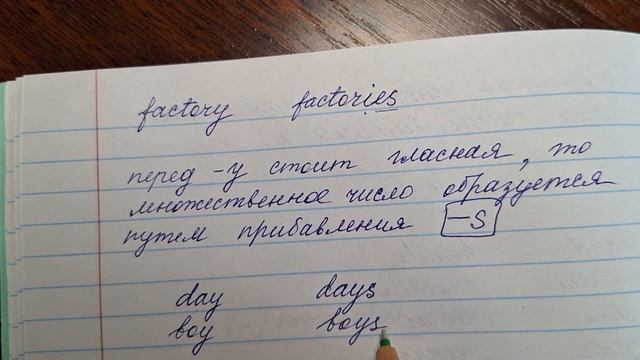 factory factories
перед -у стоит гласная, то
множественное число образуется
путем прибавления -s
day days
boy boys